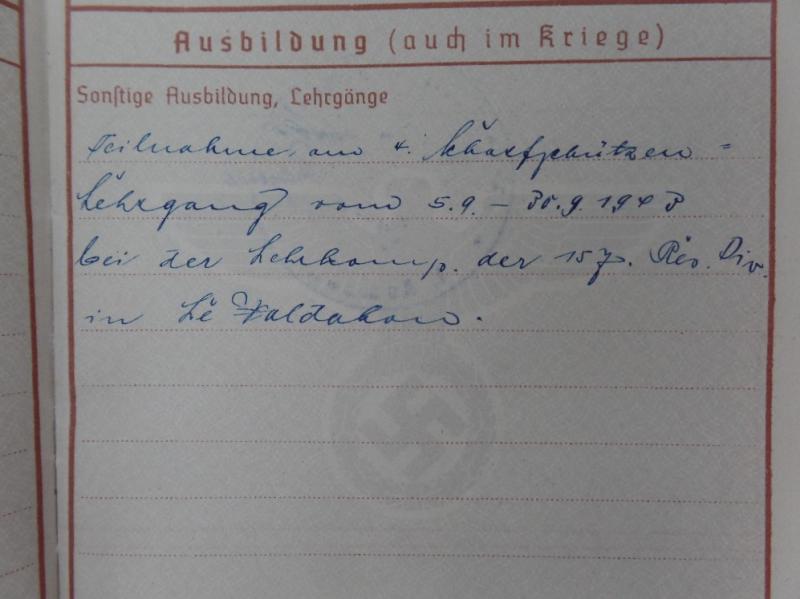 Ausbildung (auch im Kriege)
Sonstige Ausbildung, Lehrgänge
Teilnahme am 4. Scharfschützen=
Lehrgang vom 5.9. – 30.9.1943
bei der Lehrkomp. der 157. Res. Div.
in Le Valdahon.